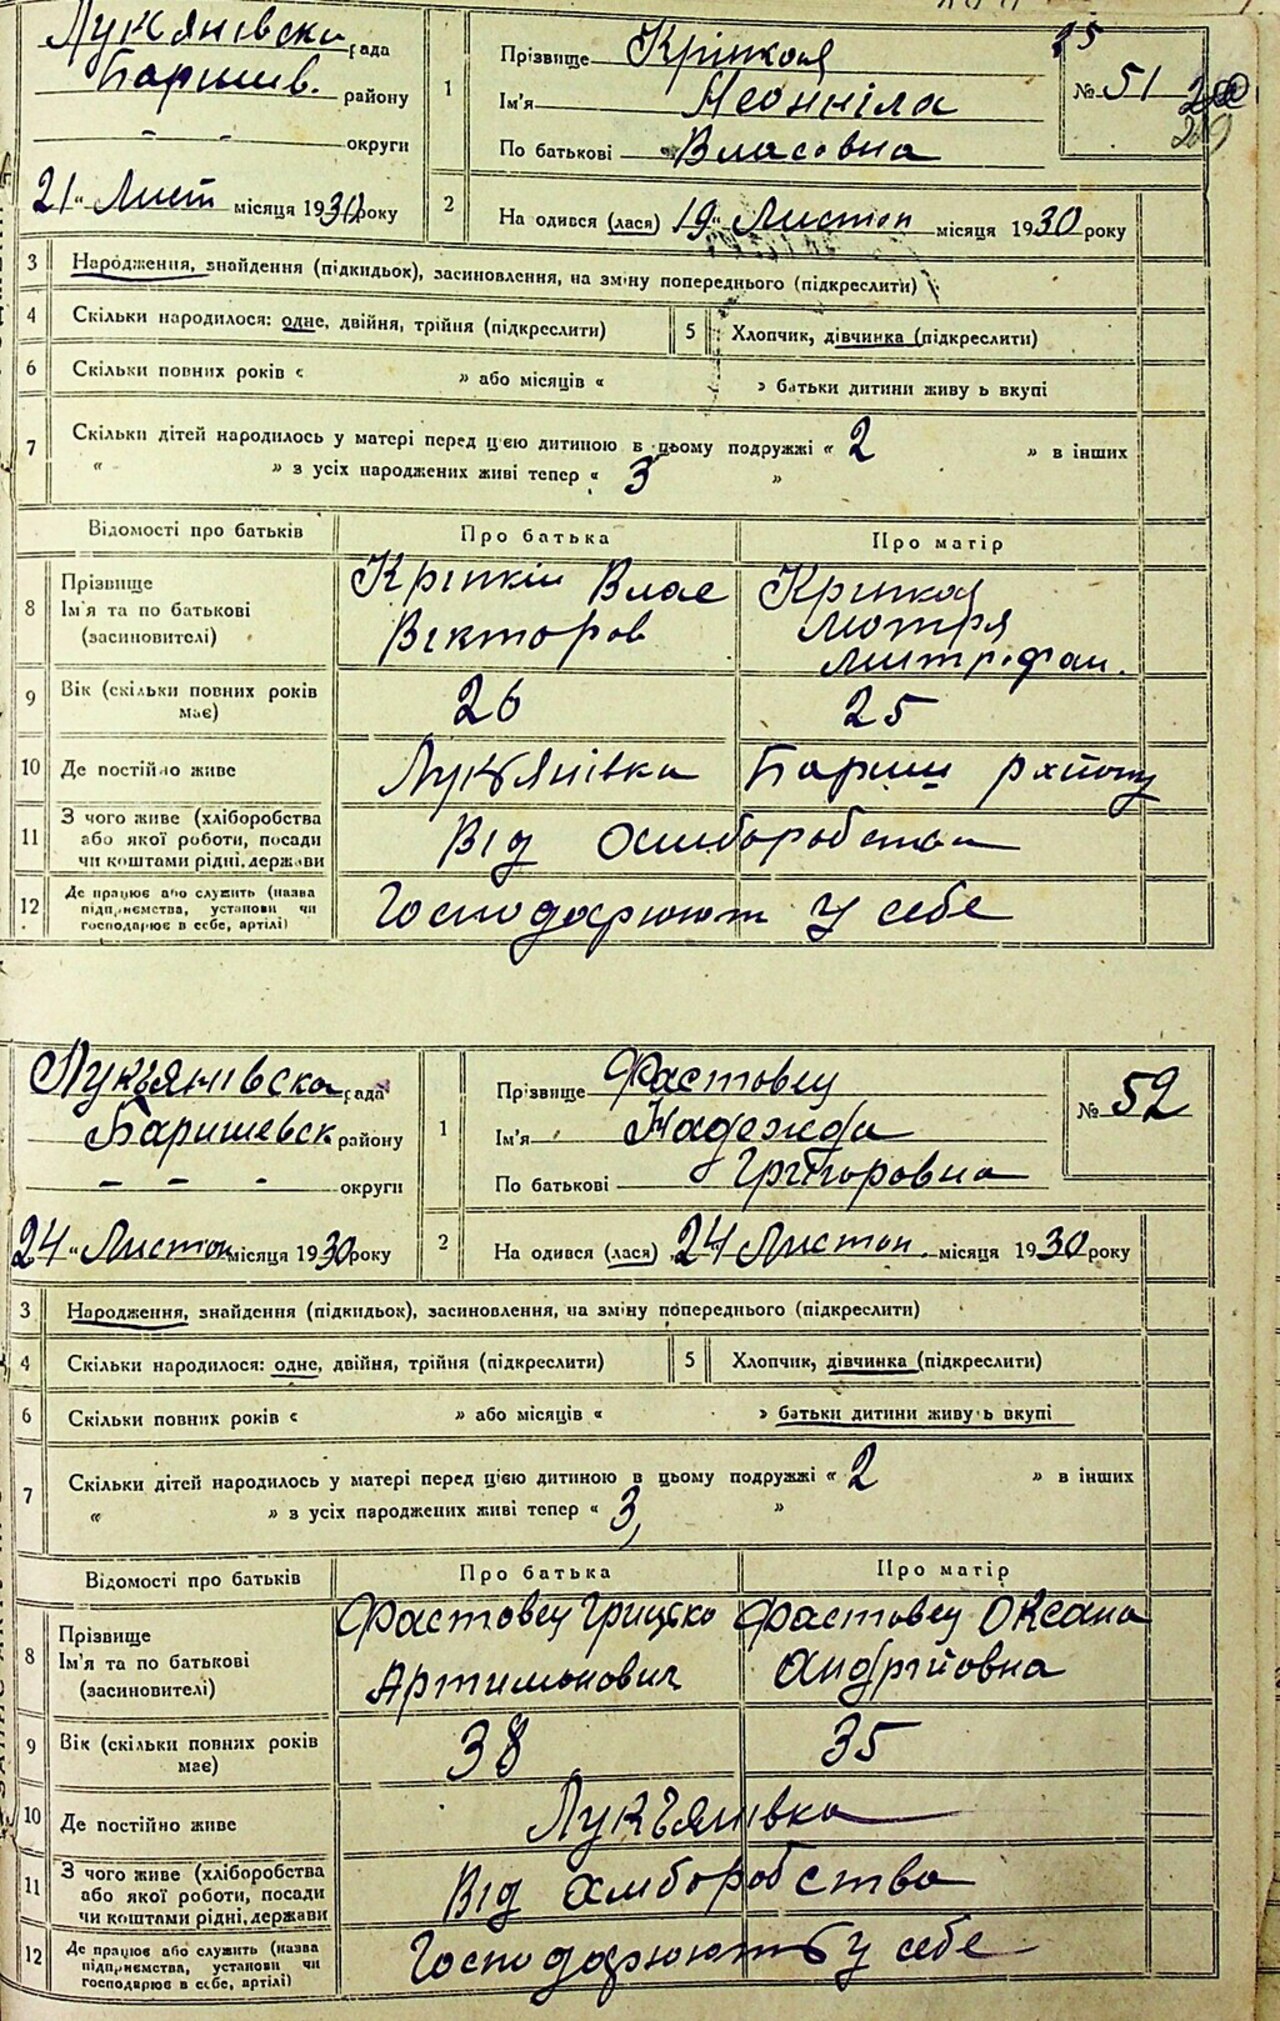 Лукянівска рада
Баришив. району
— — округи
21 " Лист місяця 1930 року
1
Прізвище Кріпкая
Ім'я Неоніла
По батькові Власовна
25
№ 51
2
На одився (лася) 19 " Листоп місяця 1930 року
3 Народження, знайдення (підкидьок), засиновлення, на зміну попереднього (підкреслити)
4 Скільки народилося: одне, двійня, трійня (підкреслити) 5 Хлопчик, дівчинка (підкреслити)
6 Скільки повних років « » або місяців « » батьки дитини живу ь вкупі
7 Скільки дітей народилось у матері перед цією дитиною в цьому подружжі « 2 » в інших
« » з усіх народжених живі тепер « 3 »
Відомості про батьків Про батька Про матір
8 Прізвище Ім'я та по батькові (засиновителі)
Кріпкій Влас Вікторов
Кріпкая Мотря Митрофан.
9 Вік (скільки повних років має) 26 25
10 Де постійно живе Лукъянівка Бариш району
11 З чого живе (хліборобства
або якої роботи, посади
чи коштами рідні, держави
Від Хліборобства
12 Де працює або служить (назва
підприємства, установи чи
господарює в себе, артілі)
Господарюют у себе
Лукъянівска рада
Баришевск району
— — - округи
24 " Листоп місяця 1930 року
1
Прізвище Фастовец
Ім'я Надежда
По батькові Григоровна
№ 52
2
На одився (лася) 24 " Листоп. місяця 1930 року
3 Народження, знайдення (підкидьок), засиновлення, на зміну попереднього (підкреслити)
4 Скільки народилося: одне, двійня, трійня (підкреслити) 5 Хлопчик, дівчинка (підкреслити)
6 Скільки повних років « » або місяців « » батьки дитини живу ь вкупі
7 Скільки дітей народилось у матері перед цією дитиною в цьому подружжі « 2 » в інших
« » з усіх народжених живі тепер « 3 »
Відомості про батьків Про батька Про матір
8 Прізвище Ім'я та по батькові (засиновителі)
Фастовец Грицько Артимонович
Фастовец Оксана Андрійовна
9 Вік (скільки повних років має) 38 35
10 Де постійно живе Лукъянівка
11 З чого живе (хліборобства
або якої роботи, посади
чи коштами рідні, держави
Від Хліборобства
12 Де працює або служить (назва
підприємства, установи чи
господарює в себе, артілі)
Господарюють у себе